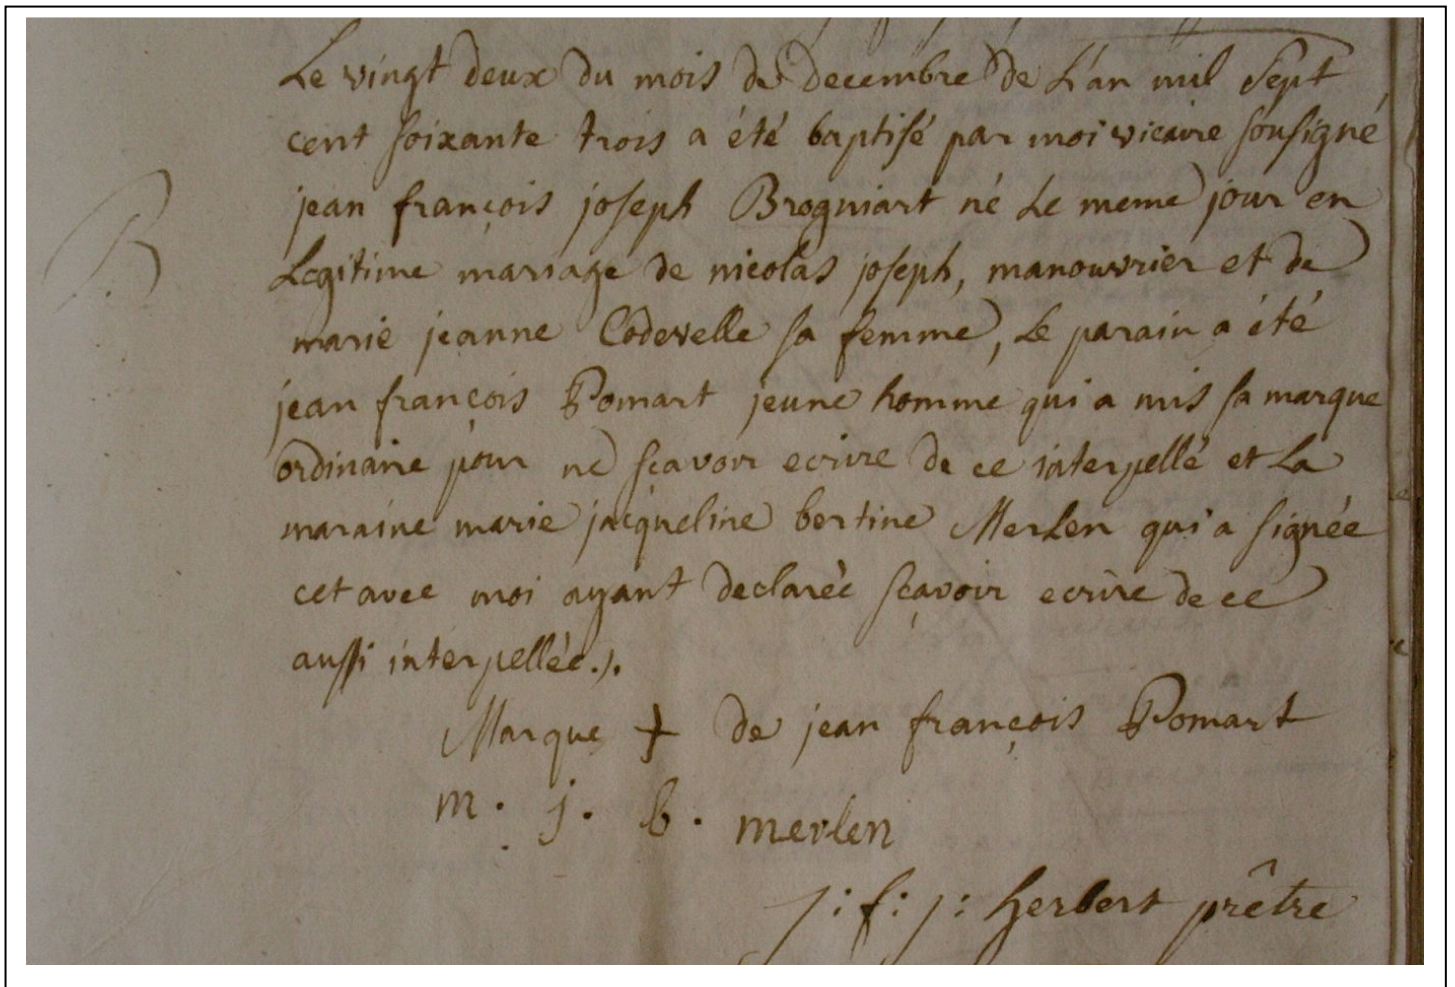 B
Le vingt deux du mois de decembre de L'an mil sept
cent soixante trois a été baptisé par moi vicaire sousigné
jean françois joseph Brogniart né Le meme jour en
Legitime mariage de nicolas joseph, manouvrier et de
marie jeanne Codevelle sa femme, Le parain a été
jean françois Pomart jeune homme qui a mis sa marque
ordinaire pour ne sçavoir ecrire de ce interpellé et La
maraine marie jacqueline bertine Merlen qui a signée
cet avec moi ayant declaréé sçavoir ecrire de ce
aussi interpellée.).
Marque + de jean françois Pomart
m. j. b. merlen
j: f: j: herbert prêtre